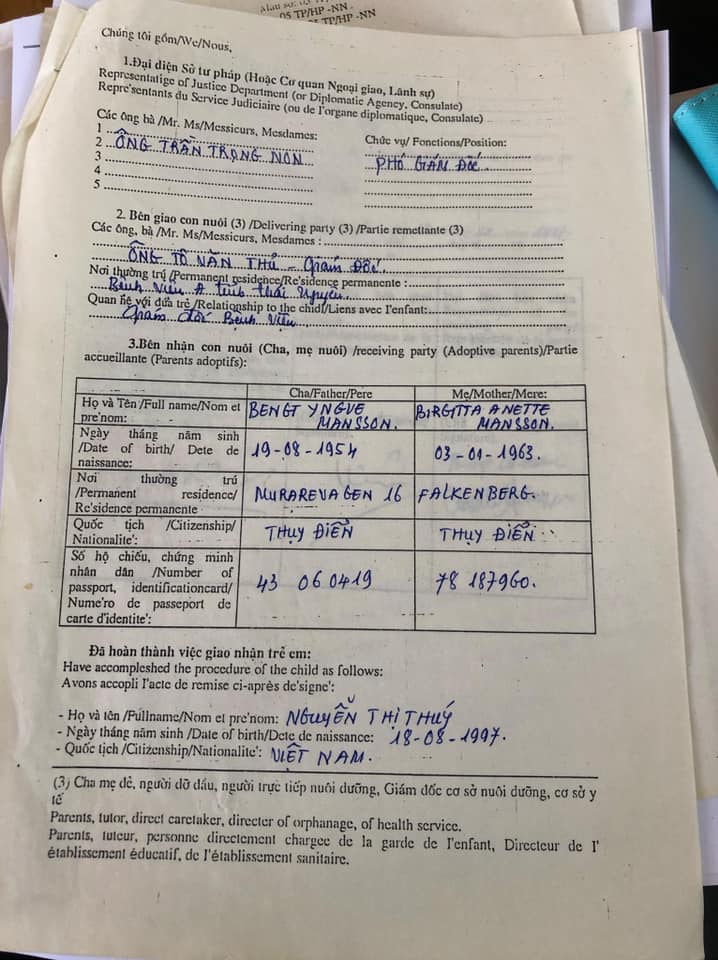 05 TP/HP -NN -
TP/HP -NN
Chúng tôi gồm/We/Nous,
1.Đại diện Sở tư pháp (Hoặc Cơ quan Ngoại giao, Lãnh sự)
Representatige of Justice Department (or Diplomatic Agency, Consulate)
Repre'sentants du Service Judiciaire (ou de l'organe diplomatique, Consulate)
Các ông bà /Mr. Ms/Messicurs, Mesdames:
Chức vụ/ Fonctions/Position:
1
2 ÔNG TRẦN TRỌNG NON
PHÓ GIÁM ĐỐC
3
4
5
2. Bên giao con nuôi (3) /Delivering party (3) /Partie remettante (3)
Các ông, bà /Mr. Ms/Messicurs, Mesdames :
ÔNG TÔ VĂN THỦ - Giám Đốc.
Nơi thường trú /Permanent residence/Re'sidence permanente :
Bệnh Viện A tỉnh Thái Nguyên.
Quan hệ với đứa trẻ /Relationship to the chidl/Liens avec l'enfant:
Giám đốc Bệnh Viện
3.Bên nhận con nuôi (Cha, mẹ nuôi) /receiving party (Adoptive parents)/Partie
accueillante (Parents adoptifs):
Cha/Father/Pere
Me/Mother/Mere:
Họ và Tên /Full name/Nom et
pre'nom:
BENGT YNGVE
MANSSON.
BIRGITTA ANETTE
MANSSON.
Ngày tháng năm sinh
/Date of birth/ Dete de
naissance:
19-08-1954
03-01-1963.
Nơi thường trú
/Permanent residence/
Re'sidence permanente
MURAREVAGEN 16
FALKENBERG.
Quốc tịch /Citizenship/
Nationalite':
THỤY ĐIỂN
THỤY ĐIỂN
Số hộ chiếu, chứng minh
nhân dân /Number of
passport, identificationcard/
Nume'ro de passeport de
carte d'identite':
43 060419
78 187960.
Đã hoàn thành việc giao nhận trẻ em:
Have accompleshed the procedure of the child as follows:
Avons accopli l'acte de remise ci-après de'signe':
- Họ và tên /Fullname/Nom et pre'nom: NGUYỄN THỊ THUÝ
- Ngày tháng năm sinh /Date of birth/Dete de naissance: 18-08-1997.
- Quốc tịch /Citizenship/Nationalite': VIỆT NAM.
(3) Cha mẹ đẻ, người đỡ đầu, người trực tiếp nuôi dưỡng, Giám đốc cơ sở nuôi dưỡng, cơ sở y
tế
Parents, tutor, direct caretaker, directer of orphanage, of health service.
Parents, tuteur, personne directement chargee de la garde de l'enfant, Directeur de l'
établissement éducatif, de l'établissement sanitaire.